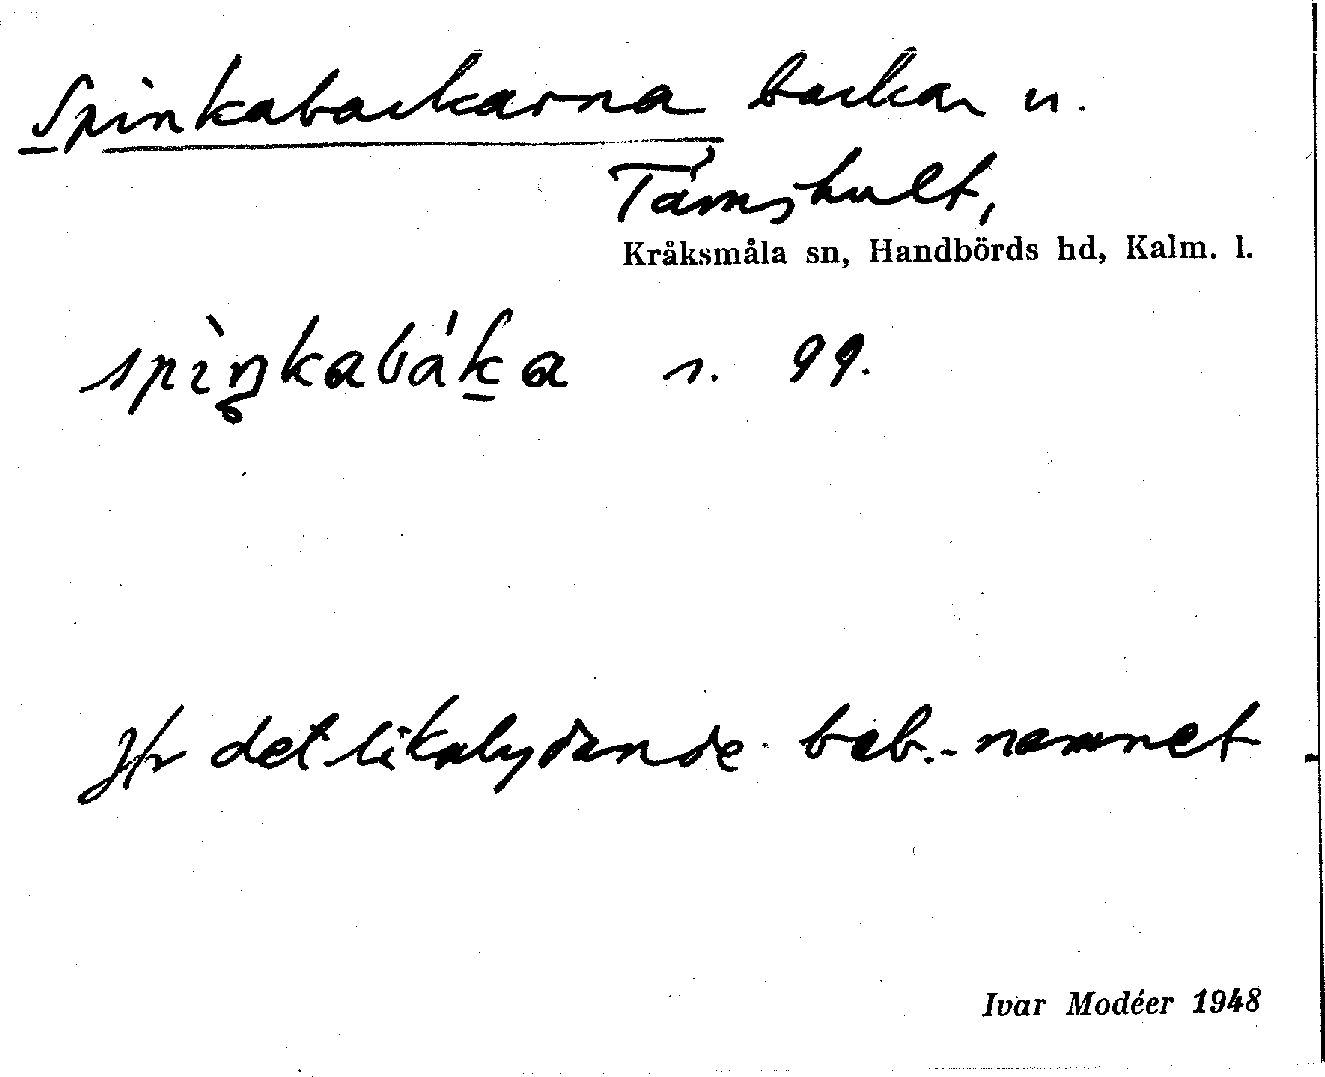 Spinkabackarna backar n.
Tämshult,
Kråksmåla sn, Handbörds hd, Kalm. l.
spìŋkabáka s. 99.
Jfr det likalydande beb.-namnet.
Ivar Modéer 1948